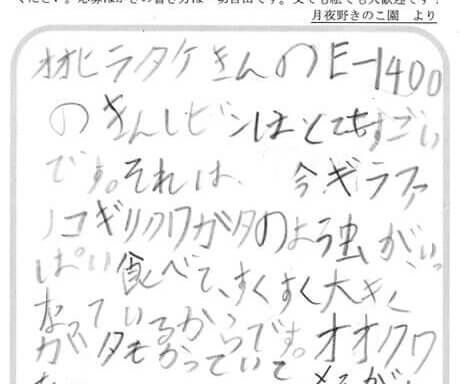 月夜野きのこ園　より
オオヒラタケきんのE-1400
のきんしビンはとてもすごい
です。それは、今ギラファ
ノコギリクワガタのよう虫がいっ
ぱい食べて、すくすく大きく
なっているからです。オオクワ
ガタもかっていて